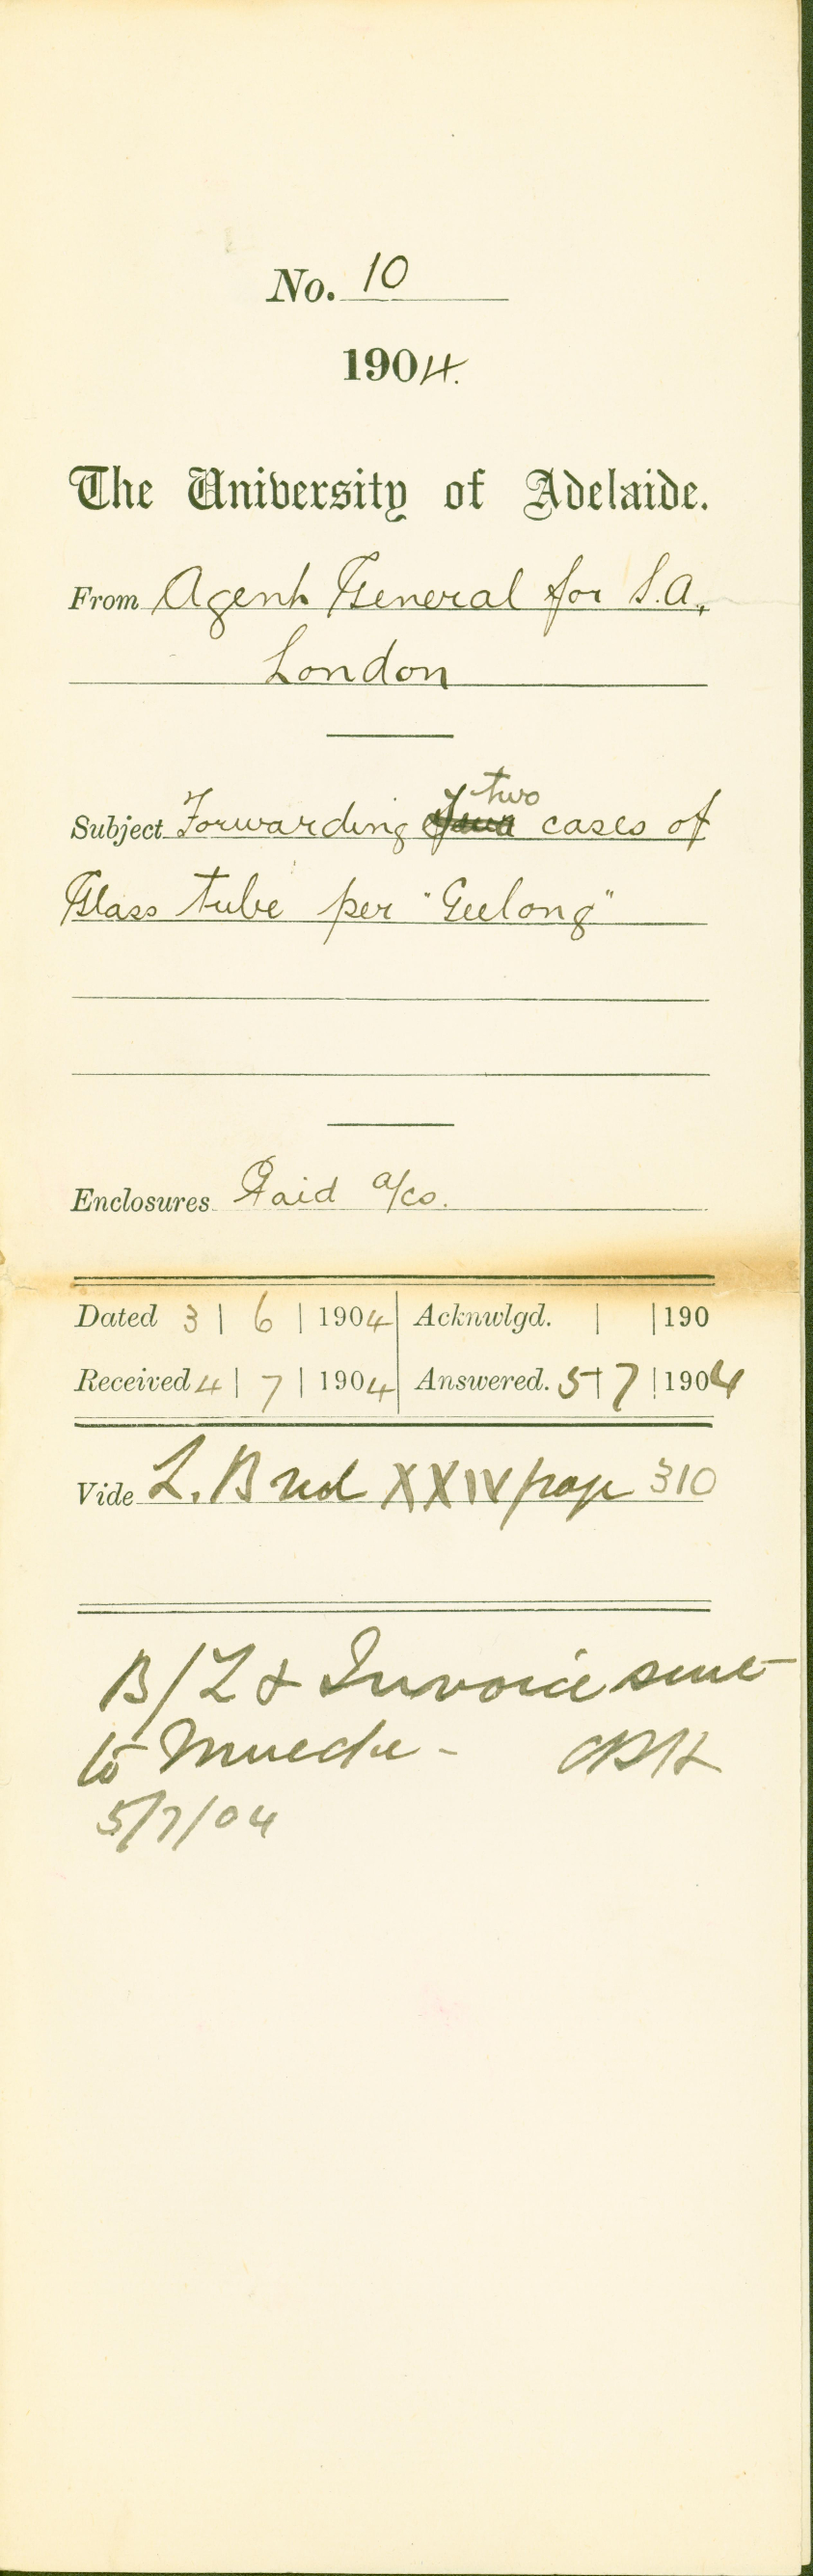 No. 10
1904.
The University of Adelaide.
From Agent General for S.A.,
London
two
Subject Forwarding cases of
Glass tube per "Geelong"
Enclosures Paid a/cs.
Dated 3 | 6 | 1904 Acknwlgd. | | 190
Received 4 | 7 | 1904 Answered. 5 | 7 | 1904
Vide L. B red XXIV page 310
B/L & Invoice sent
to Muecke - CRH
5/7/04